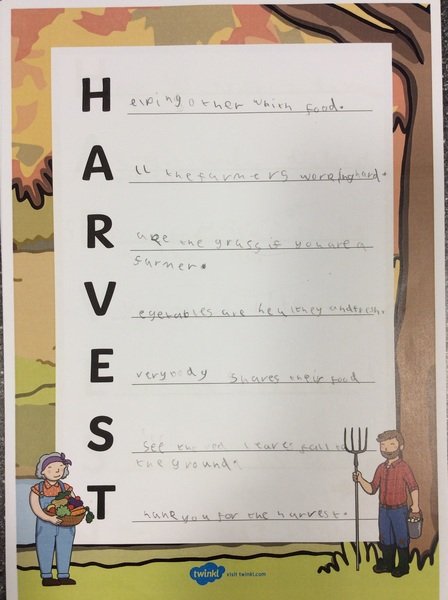 H elping other whith food.
A ll the farmers hard.
R ake the grass if you are a
farmer.
V egetables are healthey andfresh.
E verybody shares their food
S see the leaves fall to
the ground.
T hankyou for the harvest.
twinkl visit twinkl.com